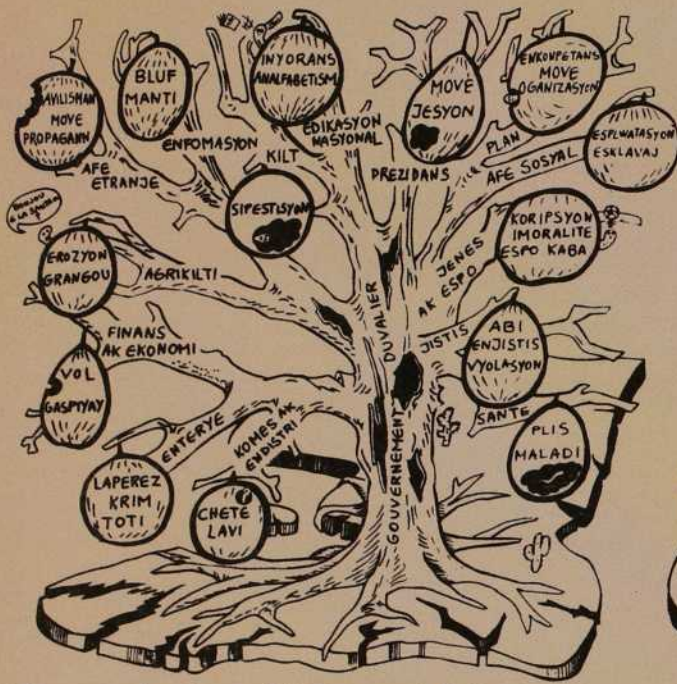 AVILISMAN
MOVE
PROPAGANN
BLUF
MANTI
INYORANS
ANALFABETISM
MOVE
JESYON
ENKONPETANS
MOVE
OGANIZASYON
ESPLWATASYON
ESKLAVAJ
AFE
ETRANJE
ENFOMASYON
KILT
EDIKASYON
NASYONAL
PREZIDANS
PLAN
AFE SOSYAL
SIPESTISYON
KORIPSYON
IMORALITE
ESPO KABA
EROZYON
GRANGOU
AGRIKILTI
JENES
AK ESPO
FINANS
AK EKONOMI
VOL
GASPIYAY
JISTIS
ABI
ENJISTIS
VYOLASYON
SANTE
PLIS
MALADI
ENTERYE
KOMES AK
ENDISTRI
LAPEREZ
KRIM
TOTI
CHETE
LAVI
GOUVERNEMENT DUVALIER